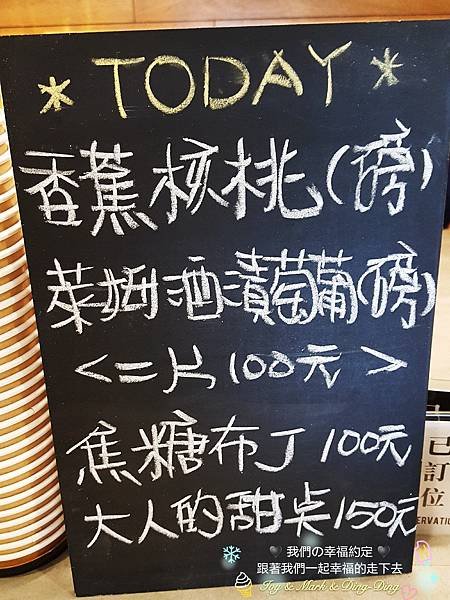 * TODAY *
香蕉核桃(磅)
萊姆酒漬萄葡(磅)
<二片100元>
焦糖布丁100元
大人的甜点150元
已訂位
RESERVATION
我們の幸福約定
跟著我們一起幸福的走下去
Joy & Mark & Ding-Ding